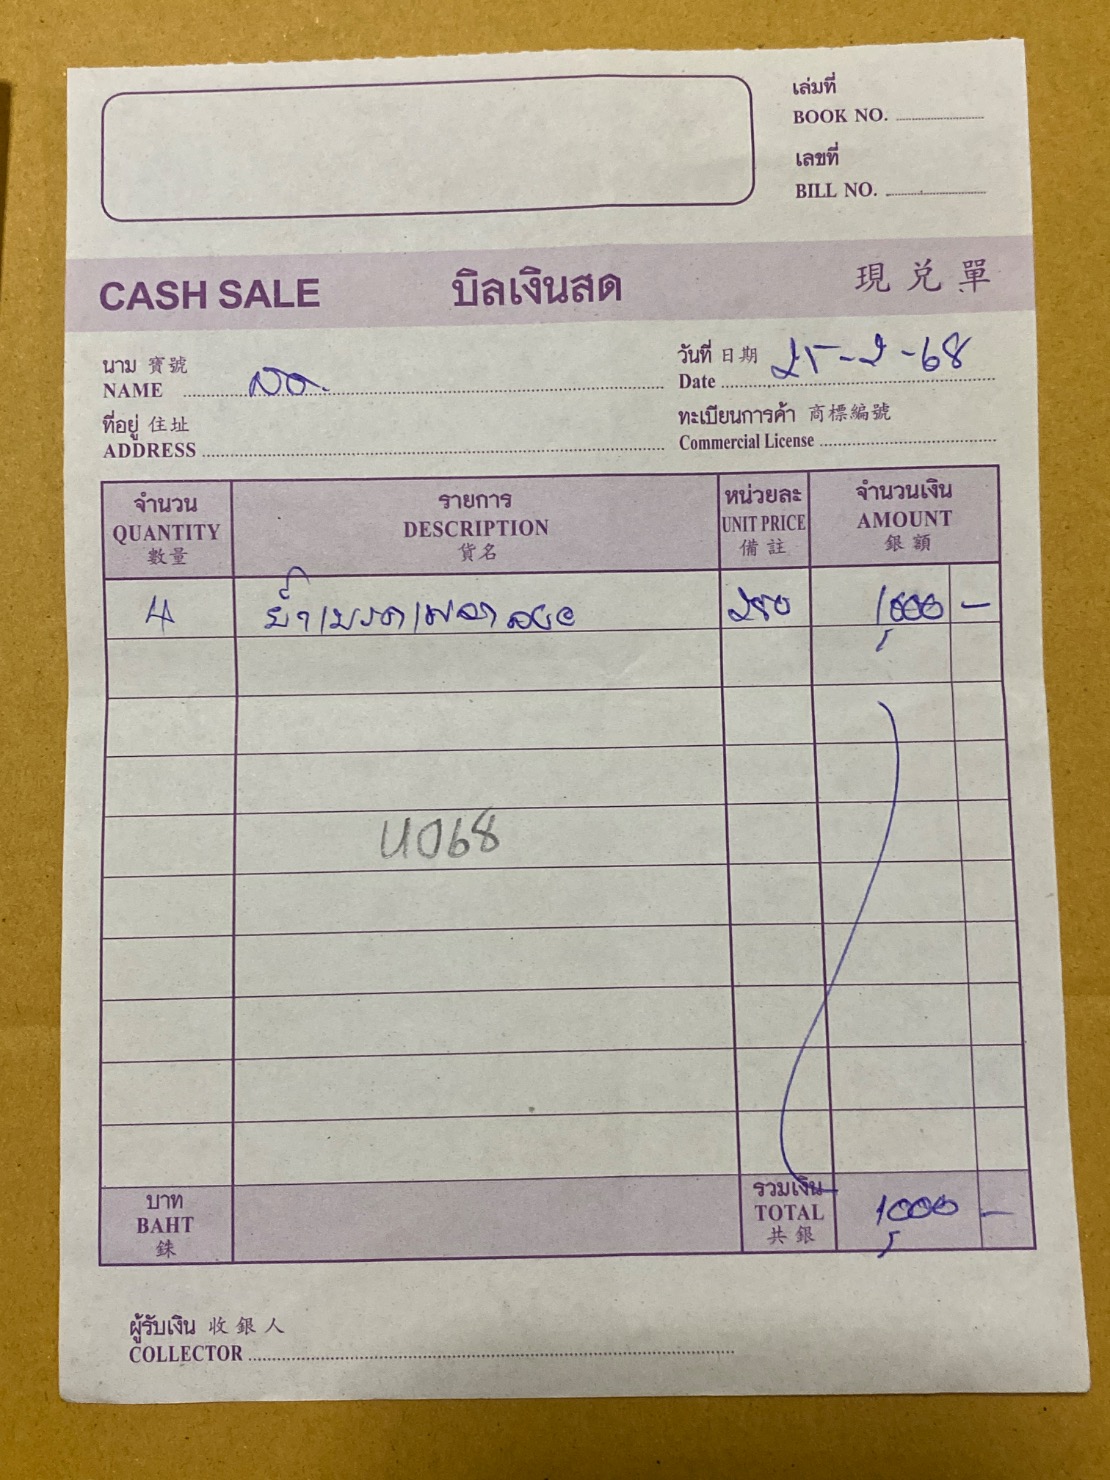 เล่มที่
BOOK NO.
เลขที่
BILL NO.
CASH SALE บิลเงินสด 現兌單
นาม 寶號
NAME สด.
วันที่ 日期
Date 25-2-68
ที่อยู่ 住址
ADDRESS
ทะเบียนการค้า 商標編號
Commercial License
จำนวน รายการ หน่วยละ จำนวนเงิน
QUANTITY DESCRIPTION UNIT PRICE AMOUNT
數量 貨名 備註 銀額
4 250 1,000 -
U068
บาท รวมเงิน
BAHT TOTAL 1,000 -
銖 共銀
ผู้รับเงิน 收銀人
COLLECTOR